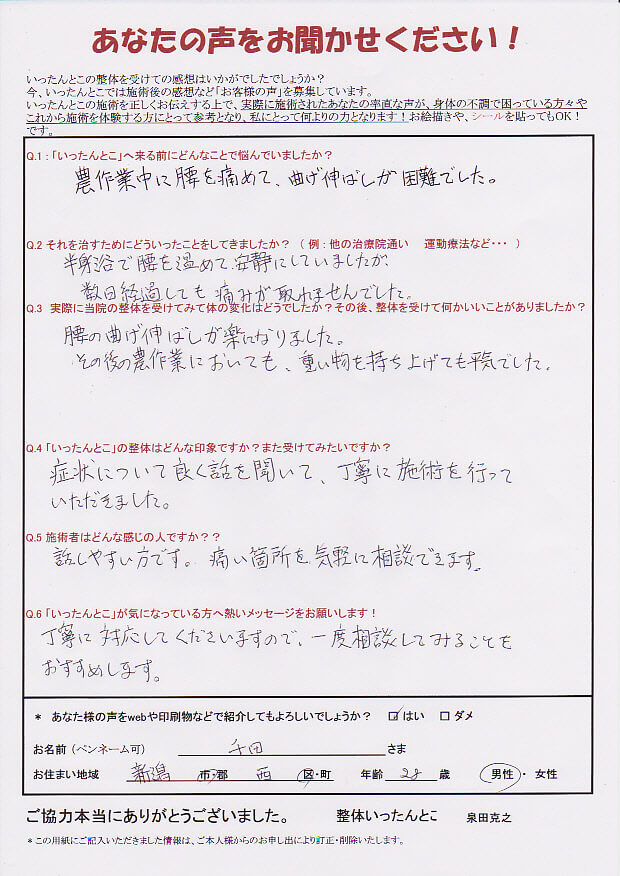 あなたの声をお聞かせください！
いったんとこの整体を受けての感想はいかがでしたでしょうか？
今、いったんとこでは施術後の感想など「お客様の声」を募集しています。
いったんとこの施術を正しくお伝えする上で、実際に施術されたあなたの率直な声が、身体の不調で困っている方々や
これから施術を体験する方にとって参考となり、私にとって何よりの力となります！お絵描きや、シールを貼ってもOK！
です。
Q.1：「いったんとこ」へ来る前にどんなことで悩んでいましたか？
農作業中に腰を痛めて、曲げ伸ばしが困難でした。
Q.2 それを治すためにどういったことをしてきましたか？（例：他の治療院通い　運動療法など・・・）
半身浴で腰を温めて安静にしていましたが、
数日経過しても痛みが取れませんでした。
Q.3 実際に当院の整体を受けてみて体の変化はどうでしたか？その後、整体を受けて何かいいことがありましたか？
腰の曲げ伸ばしが楽になりました。
その後の農作業においても、重い物を持ち上げても平気でした。
Q.4「いったんとこ」の整体はどんな印象ですか？また受けてみたいですか？
症状について良く話を聞いて、丁寧に施術を行って
いただきました。
Q.5 施術者はどんな感じの人ですか？？
話しやすい方です。痛い箇所を気軽に相談できます。
Q.6「いったんとこ」が気になっている方へ熱いメッセージをお願いします！
丁寧に対応してくださいますので、一度相談してみることを
おすすめします。
＊ あなた様の声をwebや印刷物などで紹介してもよろしいでしょうか？ ☑はい □ダメ
お名前（ペンネーム可） 千田 さま
お住まい地域 新潟 市・郡 西 区・町 年齢 28 歳 男性・女性
ご協力本当にありがとうございました。 整体いったんとこ 泉田克之
＊この用紙にご記入いただきました情報は、ご本人様からのお申し出により訂正・削除いたします。